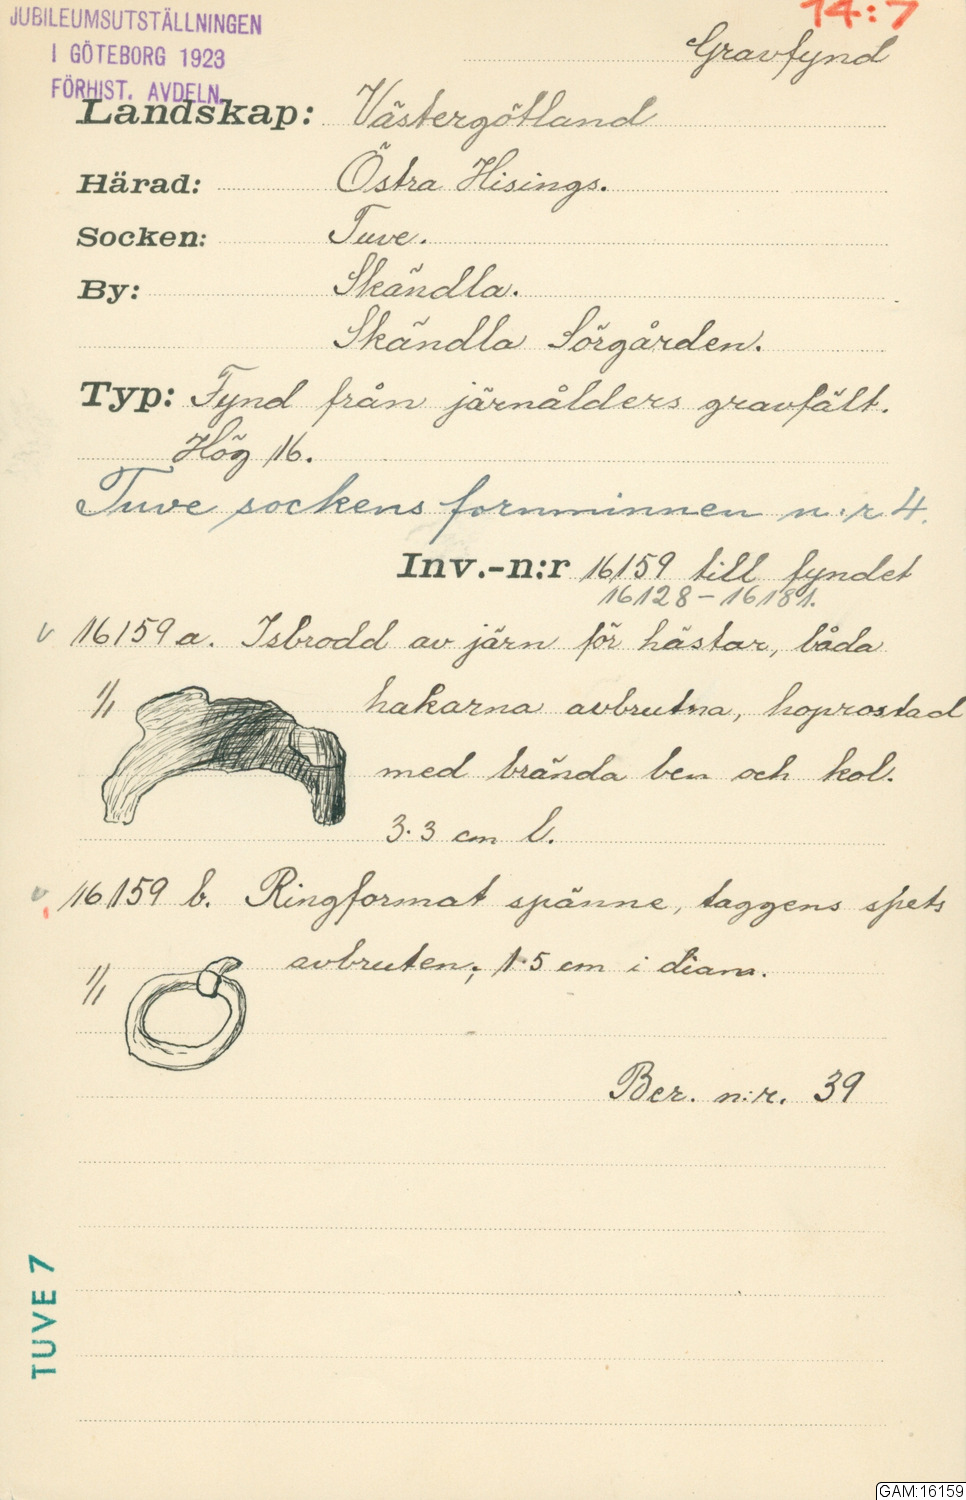 JUBILEUMSUTSTÄLLNINGEN
I GÖTEBORG 1923
FÖRHIST. AVDELN.
14:7
Gravfynd
Landskap: Västergötland
Härad: Östra Hisings.
Socken: Tuve.
By: Skändla.
Skändla Sörgården.
Typ: Fynd från järnålders gravfält.
Hög 16.
Tuve sockens fornminnen n:r 4.
Inv.-n:r 16159 till fyndet
16128-16181.
v 16159 a. Isbrodd av järn för hästar, båda
1/1 hakarna avbrutna, hoprostad
med brända ben och kol.
3.3 cm l.
v 16159 b. Ringformat spänne, taggens spets
1/1 avbruten; 1.5 cm i diam.
Ber. n:r. 39
TUVE 7
GAM:16159